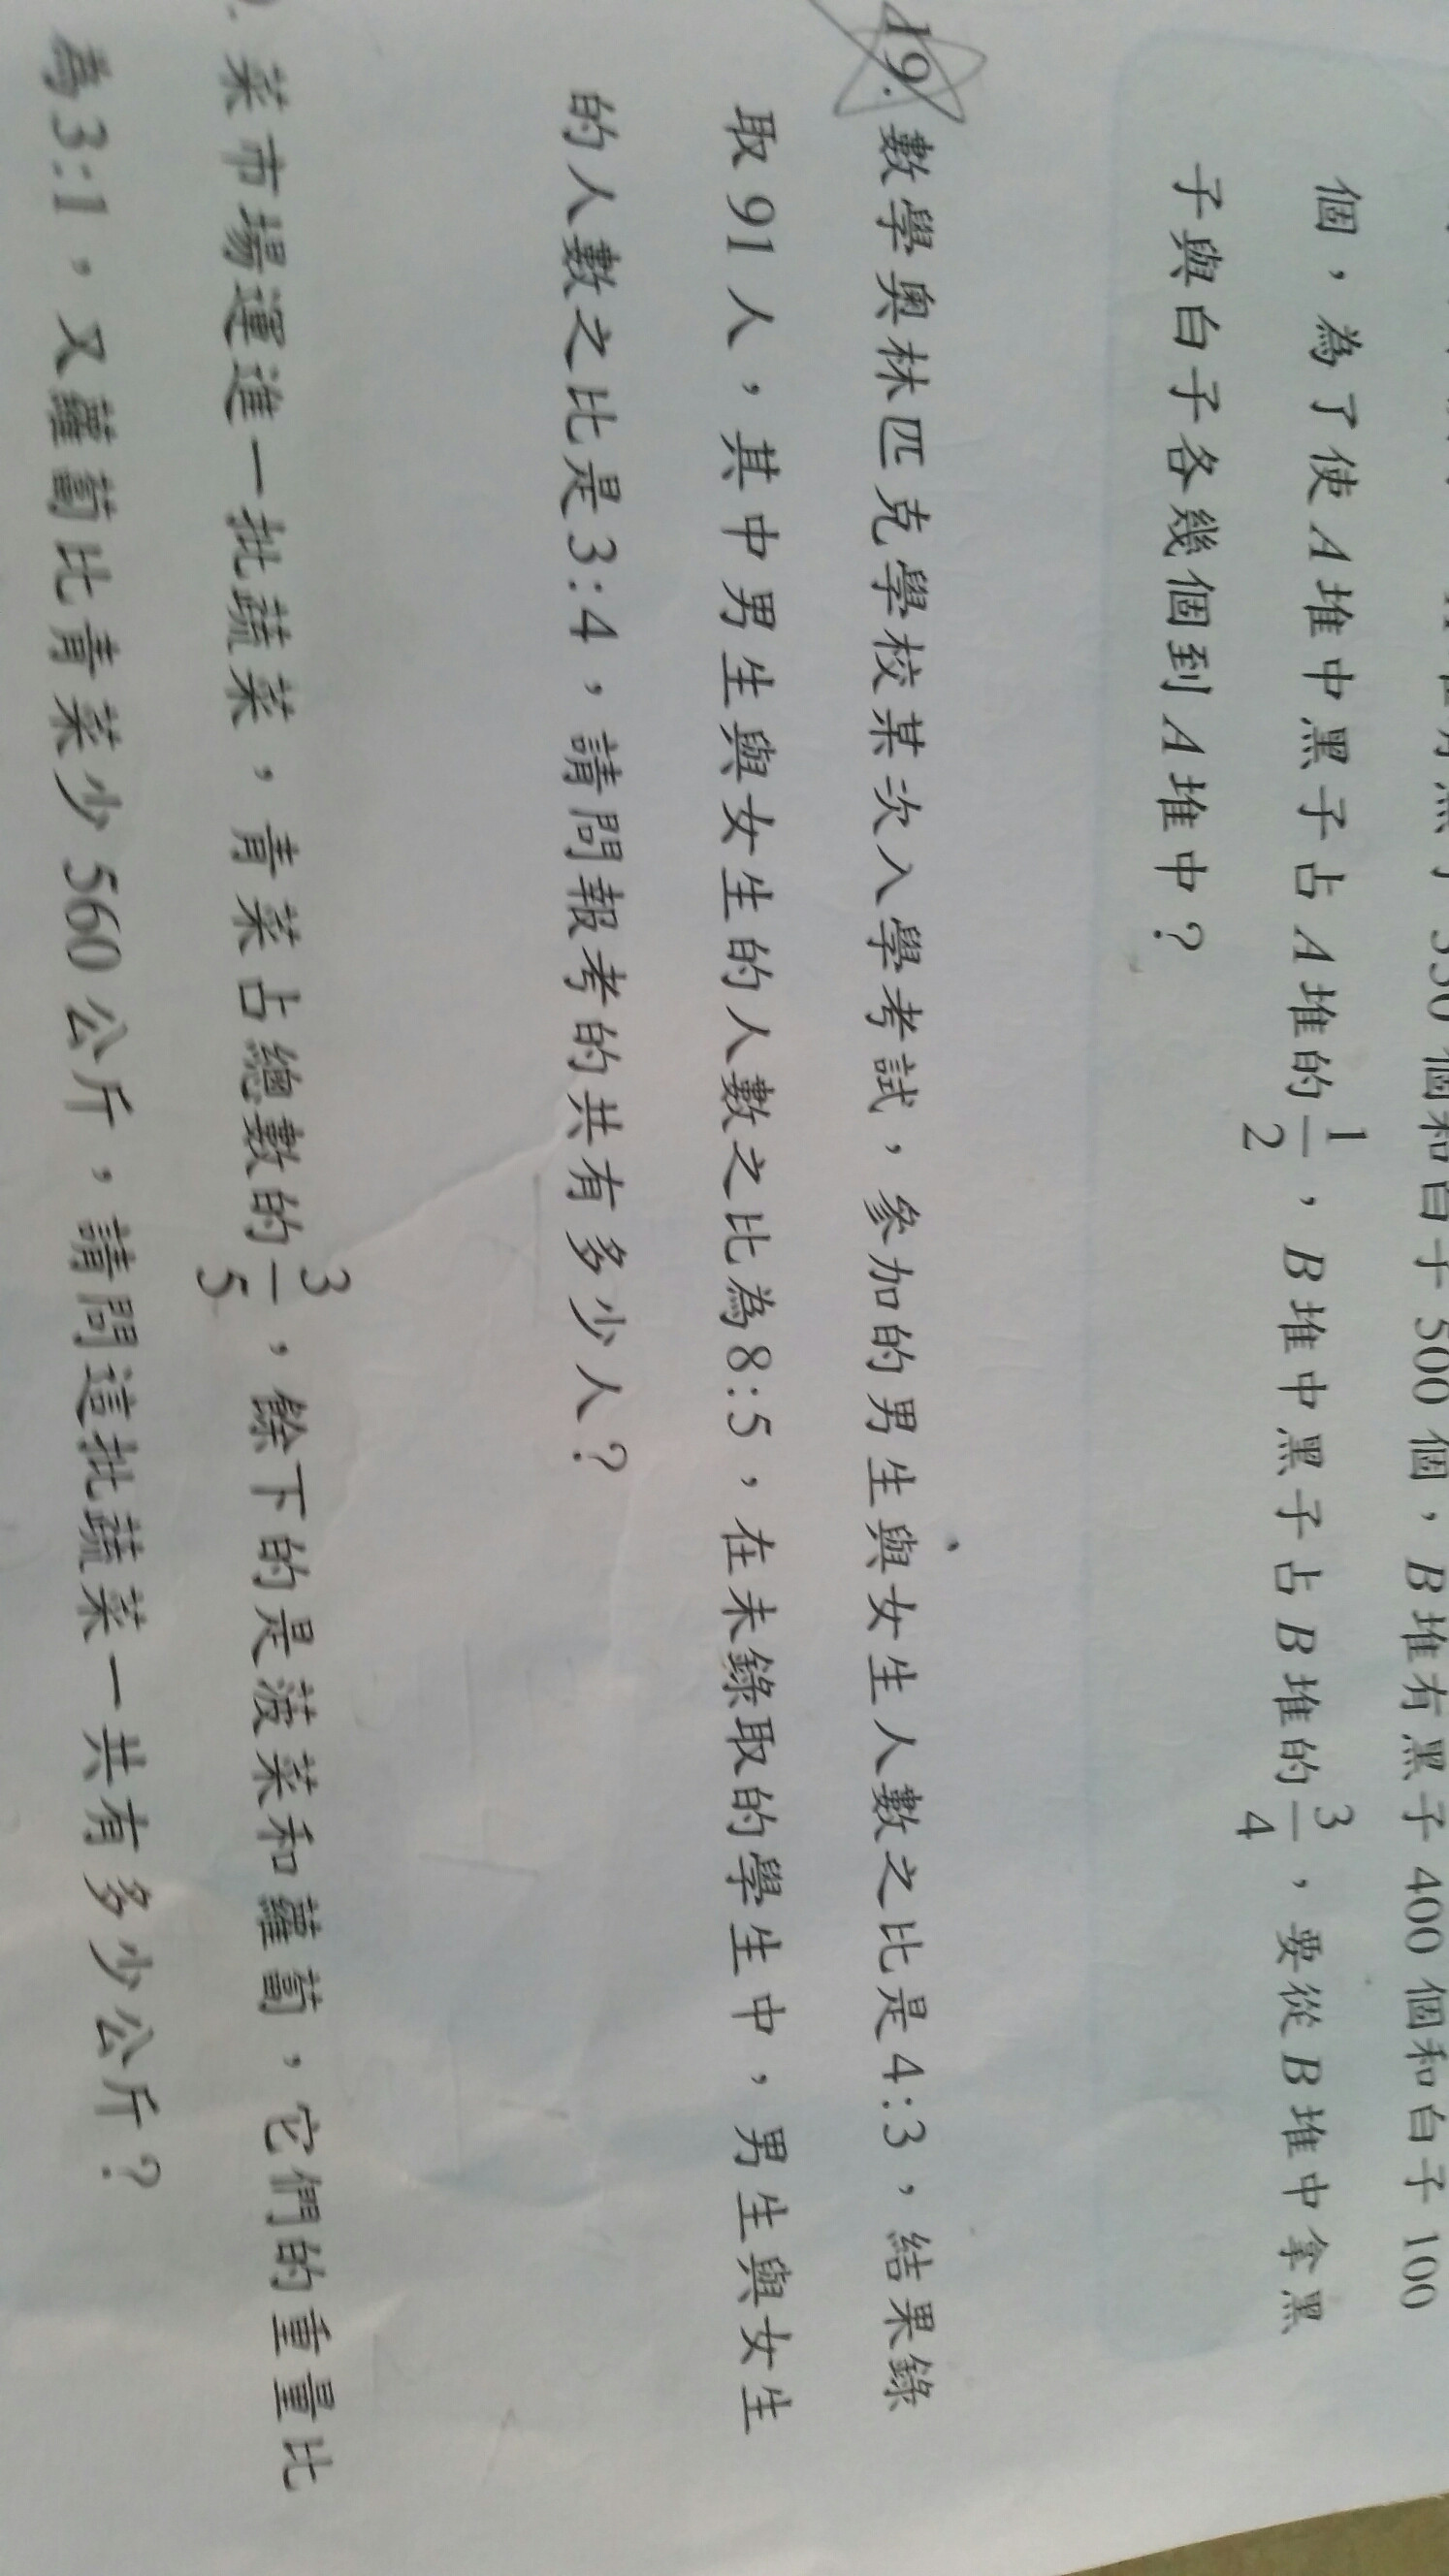 350個和白子500個，B堆有黑子400個和白子100
個，為了使A堆中黑子占A堆的1/2，B堆中黑子占B堆的3/4，要從B堆中拿黑
子與白子各幾個到A堆中？
19. 數學奧林匹克學校某次入學考試，參加的男生與女生人數之比是4:3，結果錄
取91人，其中男生與女生的人數之比為8:5，在未錄取的學生中，男生與女生
的人數之比是3:4，請問報考的共有多少人？
菜市場運進一批蔬菜，青菜占總數的3/5，餘下的是菠菜和蘿蔔，它們的重量比
為3:1，又蘿蔔比青菜少560公斤，請問這批蔬菜一共有多少公斤？